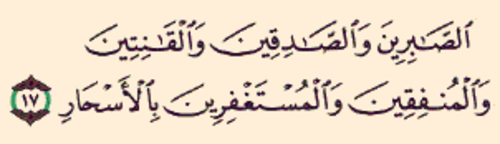 ٱلصَّٰبِرِينَ وَٱلصَّٰدِقِينَ وَٱلۡقَٰنِتِينَ
وَٱلۡمُنفِقِينَ وَٱلۡمُسۡتَغۡفِرِينَ بِٱلۡأَسۡحَارِ ١٧